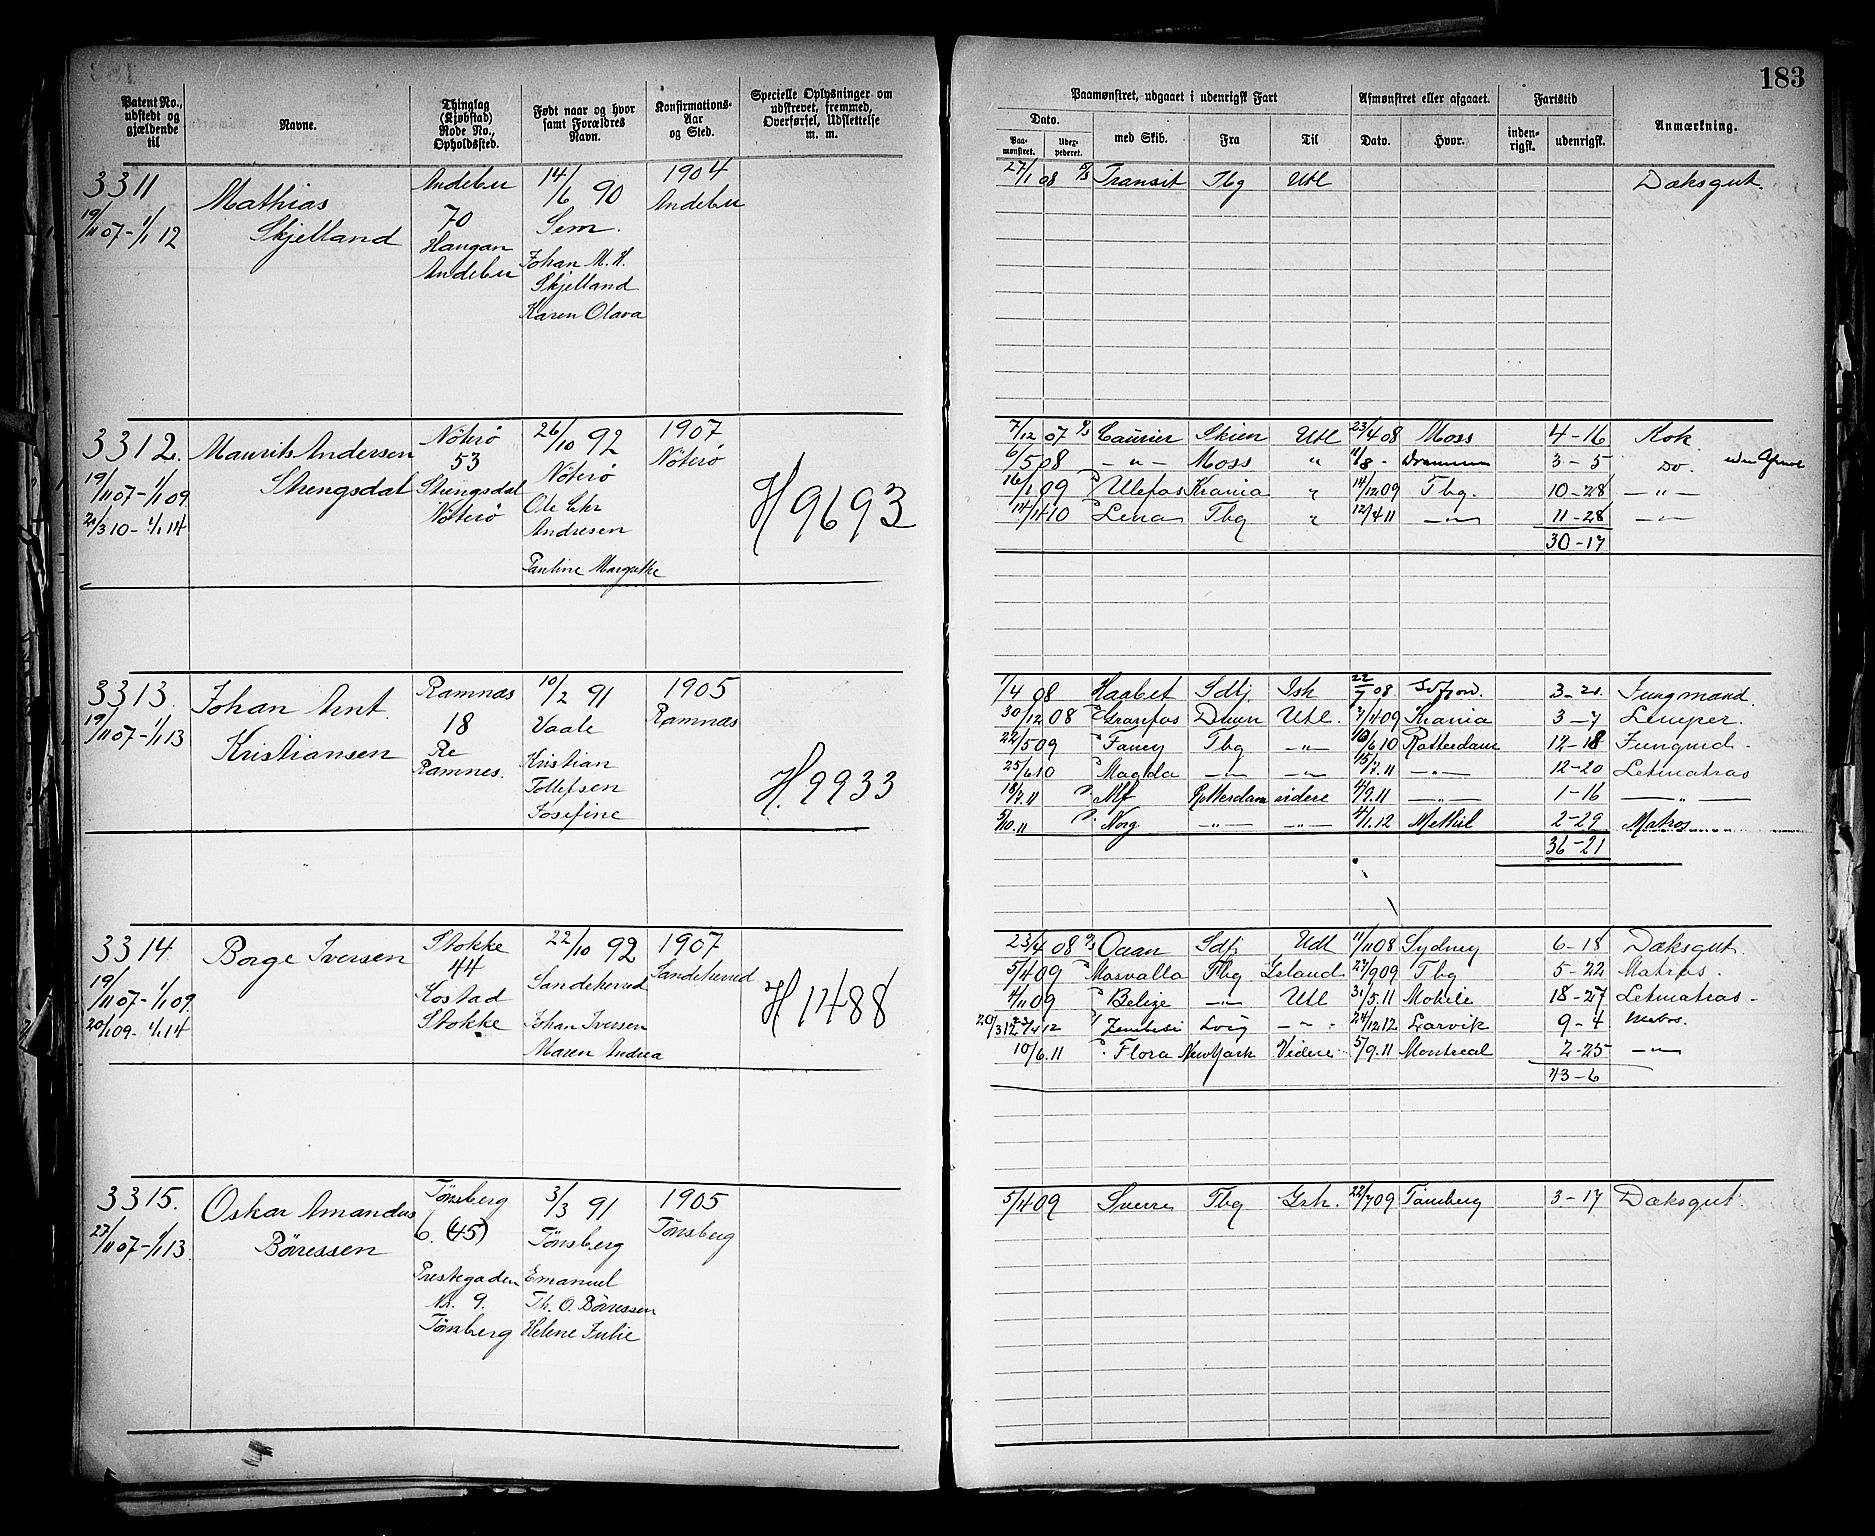 183
Patent No., udstedt og gjældende til
Navne.
Thinglag (Kjøbstad) Rode No., Opholdssted.
Født naar og hvor samt Forældres Navn.
Konfirmations-Aar og Sted.
Specielle Oplysninger om udskrevet, fremmed, Overførsel, Udslettelse m. m.
Paamønstret, udgaaet i udenrigsk Fart
Afmønstret eller afgaaet.
Fartstid
Anmærkning.
Dato.
Paa-mønstret.
med Skib.
Fra
Til
Dato.
Hvor.
inden-rigsk.
udenrigsk.
3311
19/11 07 - 1/1 12
Mathias
Skjelland
Andebu
70
Haugan
Andebu
14/6 90
Sem.
Johan M. H.
Skjelland
Karen Olava
1904
Andebu
27/1 08 Transit Tbg Utl Dæksgut.
3312.
19/11 07 - 1/1 09
21/3 10 - 1/1 14
Maurits Andersen
Strengsdal
Nöterö
53
Strengsdal
Nöterö
26/10 92
Nöterö
Ole Chr
Andresen
Pauline Margrethe
1907
Nöterö
H 9693
7/12 07 Courier Skien Utl 23/4 08 Moss 4-16 Kok
6/5 08 -"- Moss " 11/8 - Drammen 3-5 Do.
16/1 09 Ulefos Krania " 14/12 09 Tbg. 10-28 -"-
14/4 10 Lena Tbg " 12/4 11 -"- 11-28 -"-
30-17
3313.
19/11 07 - 1/1 13
Johan Arnt
Kristiansen
Ramnæs
18
Re
Ramnes.
10/2 91
Vaale
Kristian
Tollefsen
Josefine
1905
Ramnæs
H. 9933
1/4 08 Haabet Sdfj Ish 22/7 08 3-21 Jungmand.
30/12 08 Granfos Dmn Utl. 7/4 09 Krania 3-7 Lemper.
22/5 09 Fancy Tbg -"- 10/6 10 Rotterdam 12-18 Jungmd.
25/6 10 Magda -"- -"- 15/7.11 -"- 12-20 Letmatros
18/7.11 Alf Rotterdam videre 4/9.11 -"- 1-16 -"-
5/10.11 Norg -"- -"- 4/1.12 Methil 2-29 Matros
36-21
3314.
19/11 07 - 1/1 09.
20/1 09 - 1/1 14
Borge Iversen
Stokke
44
Kostad
Stokke
22/10 92
Sandeherred
Johan Iversen
Maren Andrea
1907
Sandeherred
H 1488
23/4 08 Oaan Sdfj Udl 11/11 08 Sydney 6-18 Dæksgut.
5/4 09 Mosvalla Tbg Island 27/9 09 Tbg 5-22 Matros.
4/11 09 Belize -"- Utl 31/5.11 Mobile 18-27 Letmatros
20/3 12 23/4 12 Zambesi Lvig -"- 24/12 12 Larvik 9-4 Matros.
10/6.11 Flora New York Videre 5/9.11 Montreal 2-25 -"-
43-6
3315.
27/11 07 - 1/1 13.
Oskar Amandus
Börressen
Tönsberg
6. (45)
Prestegaden
Nr. 9.
Tönsberg
3/3 91
Tönsberg
Emanuel
Th. O. Börressen
Helene Julie
1905
Tönsberg
5/4 09 Sverre Tbg Ish. 22/7 09 Tönsberg 3-17 Dæksgut.